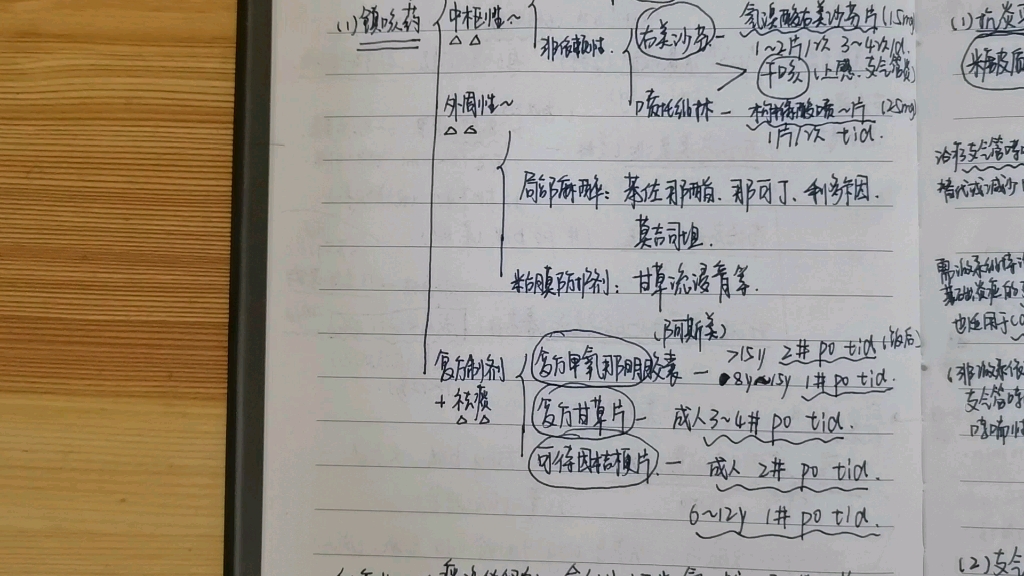 (1) 镇咳药
中枢性~
非依赖性
右美沙芬 — 氢溴酸右美沙芬片 (15mg)
1~2片/次 3~4次/d.
干咳 (上感、支气管炎
喷托维林 — 枸橼酸喷~片 (25mg)
1片/次 tid.
外周性~
局部麻醉: 苯佐那酯. 那可丁、利多卡因.
莫吉司坦.
粘膜防护剂: 甘草流浸膏等.
(阿斯美)
复方制剂
+ 祛痰
复方甲氧那明胶囊 — >15y 2# po tid (饭后)
8y~15y 1# po tid.
复方甘草片 — 成人3~4# po tid.
可待因桔梗片 — 成人 2# po tid.
6~12y 1# po tid.
(1) 抗炎
治疗支气管哮
替代或减少
也适用于CO
支气管哮
(2) 支气